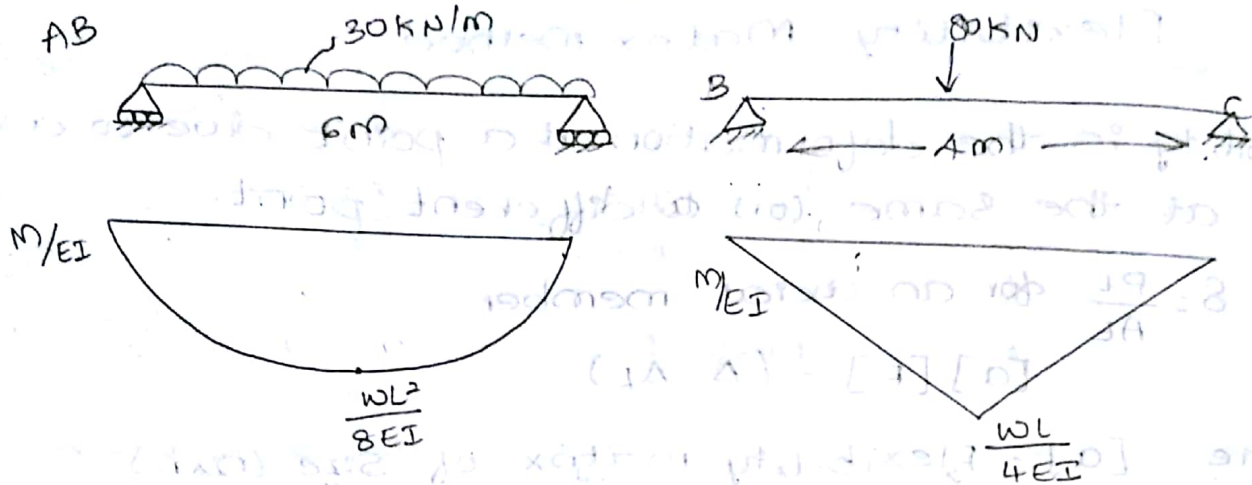 AB
30KN/m
6m
M/EI
WL²
8EI
80KN
B
C
4m
M/EI
WL
4EI